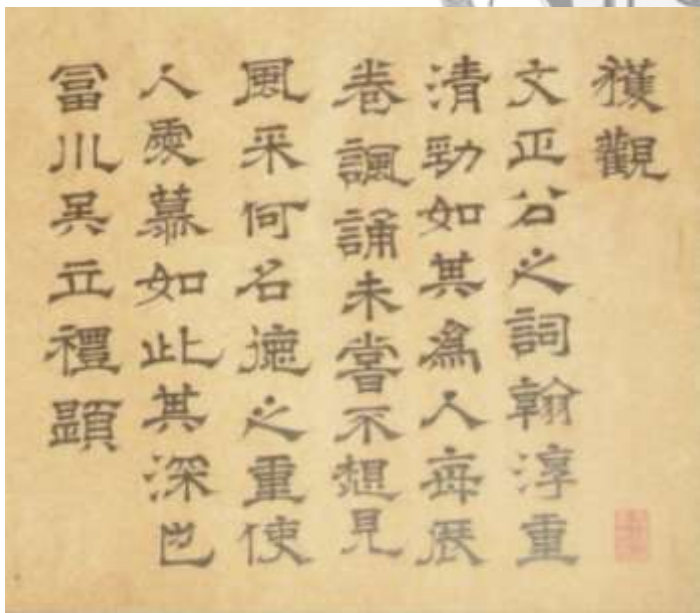 獲觀
文正公之詞翰淳重
清勁如其為人每展
卷諷誦未嘗不想見
風采何名德之重使
人愛慕如此其深也
富川吳立禮題